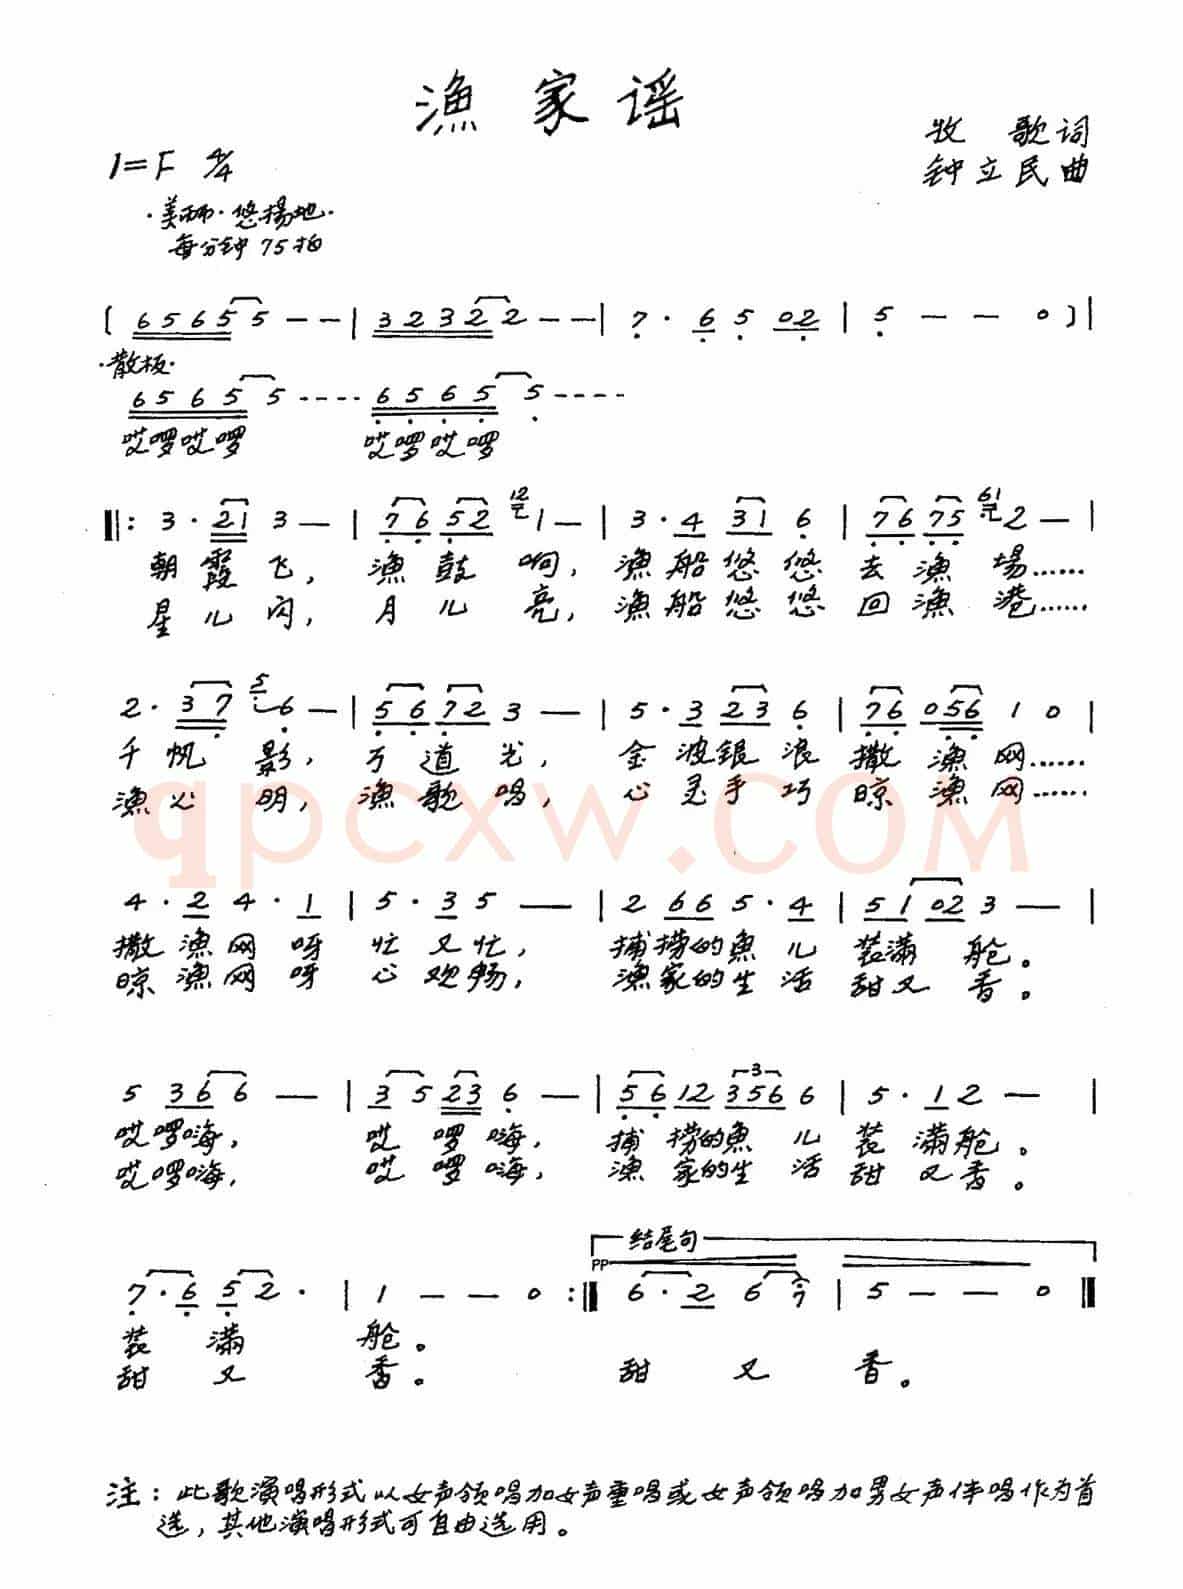 漁家谣
牧 歌词
1=F 4/4
钟立民曲
·美丽·悠揚地·
每分钟75拍
[ 6 5 6 5 5 - - | 3 2 3 2 2 - - | 7 · 6 5 0 2 | 5 - - 0 ] |
·散板·
6 5 6 5 5 - - - - 6 5 6 5 5 - - - -
哎啰哎啰 哎啰哎啰
‖: 3 · 2 1 3 - | 7 6 5 2 12 1 - | 3 · 4 3 1 6 | 7 6 7 5 61 2 - |
朝霞飞, 漁鼓响, 漁船悠悠去漁場……
星儿闪, 月儿亮, 漁船悠悠回漁港……
2 · 3 7 5 6 - | 5 6 7 2 3 - | 5 · 3 2 3 6 | 7 6 0 5 6 1 0 |
千帆影, 万道光, 金波银浪撒漁网……
漁火明, 漁歌唱, 心灵手巧晾漁网……
qpcxw.COM
4 · 2 4 · 1 | 5 · 3 5 - | 2 6 6 5 · 4 | 5 1 0 2 3 - |
撒漁网呀忙又忙, 捕捞的魚儿装满舱。
晾漁网呀心欢畅, 漁家的生活甜又香。
5 3 6 6 - | 3 5 2 3 6 - | 5 6 1 2 3 5 6 6 | 5 · 1 2 - |
3
哎啰嗨, 哎啰嗨, 捕捞的魚儿装满舱。
哎啰嗨, 哎啰嗨, 漁家的生活甜又香。
结尾句
PP
7 · 6 5 2 · | 1 - - 0 :‖ 6 · 2 6 7 | 5 - - 0 ‖
装满舱。
甜又香。 甜又香。
注:此歌演唱形式以女声领唱加女声重唱或女声领唱加男女声伴唱作为首
选,其他演唱形式可自由选用。